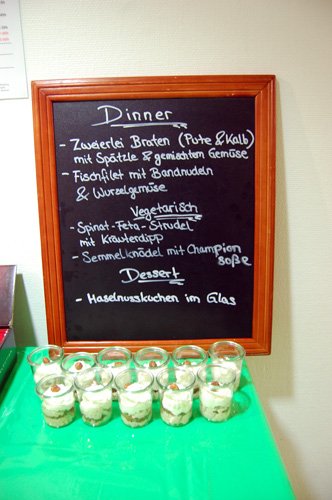 Dinner
- Zweierlei Braten (Pute & Kalb)
mit Spätzle & gemischten Gemüse
- Fischfilet mit Bandnudeln
& Wurzelgemüse
Vegetarisch
- Spinat-Feta-Strudel
mit Kräuterdipp
- Semmelknödel mit Champion
soße
Dessert
- Haselnusskuchen im Glas